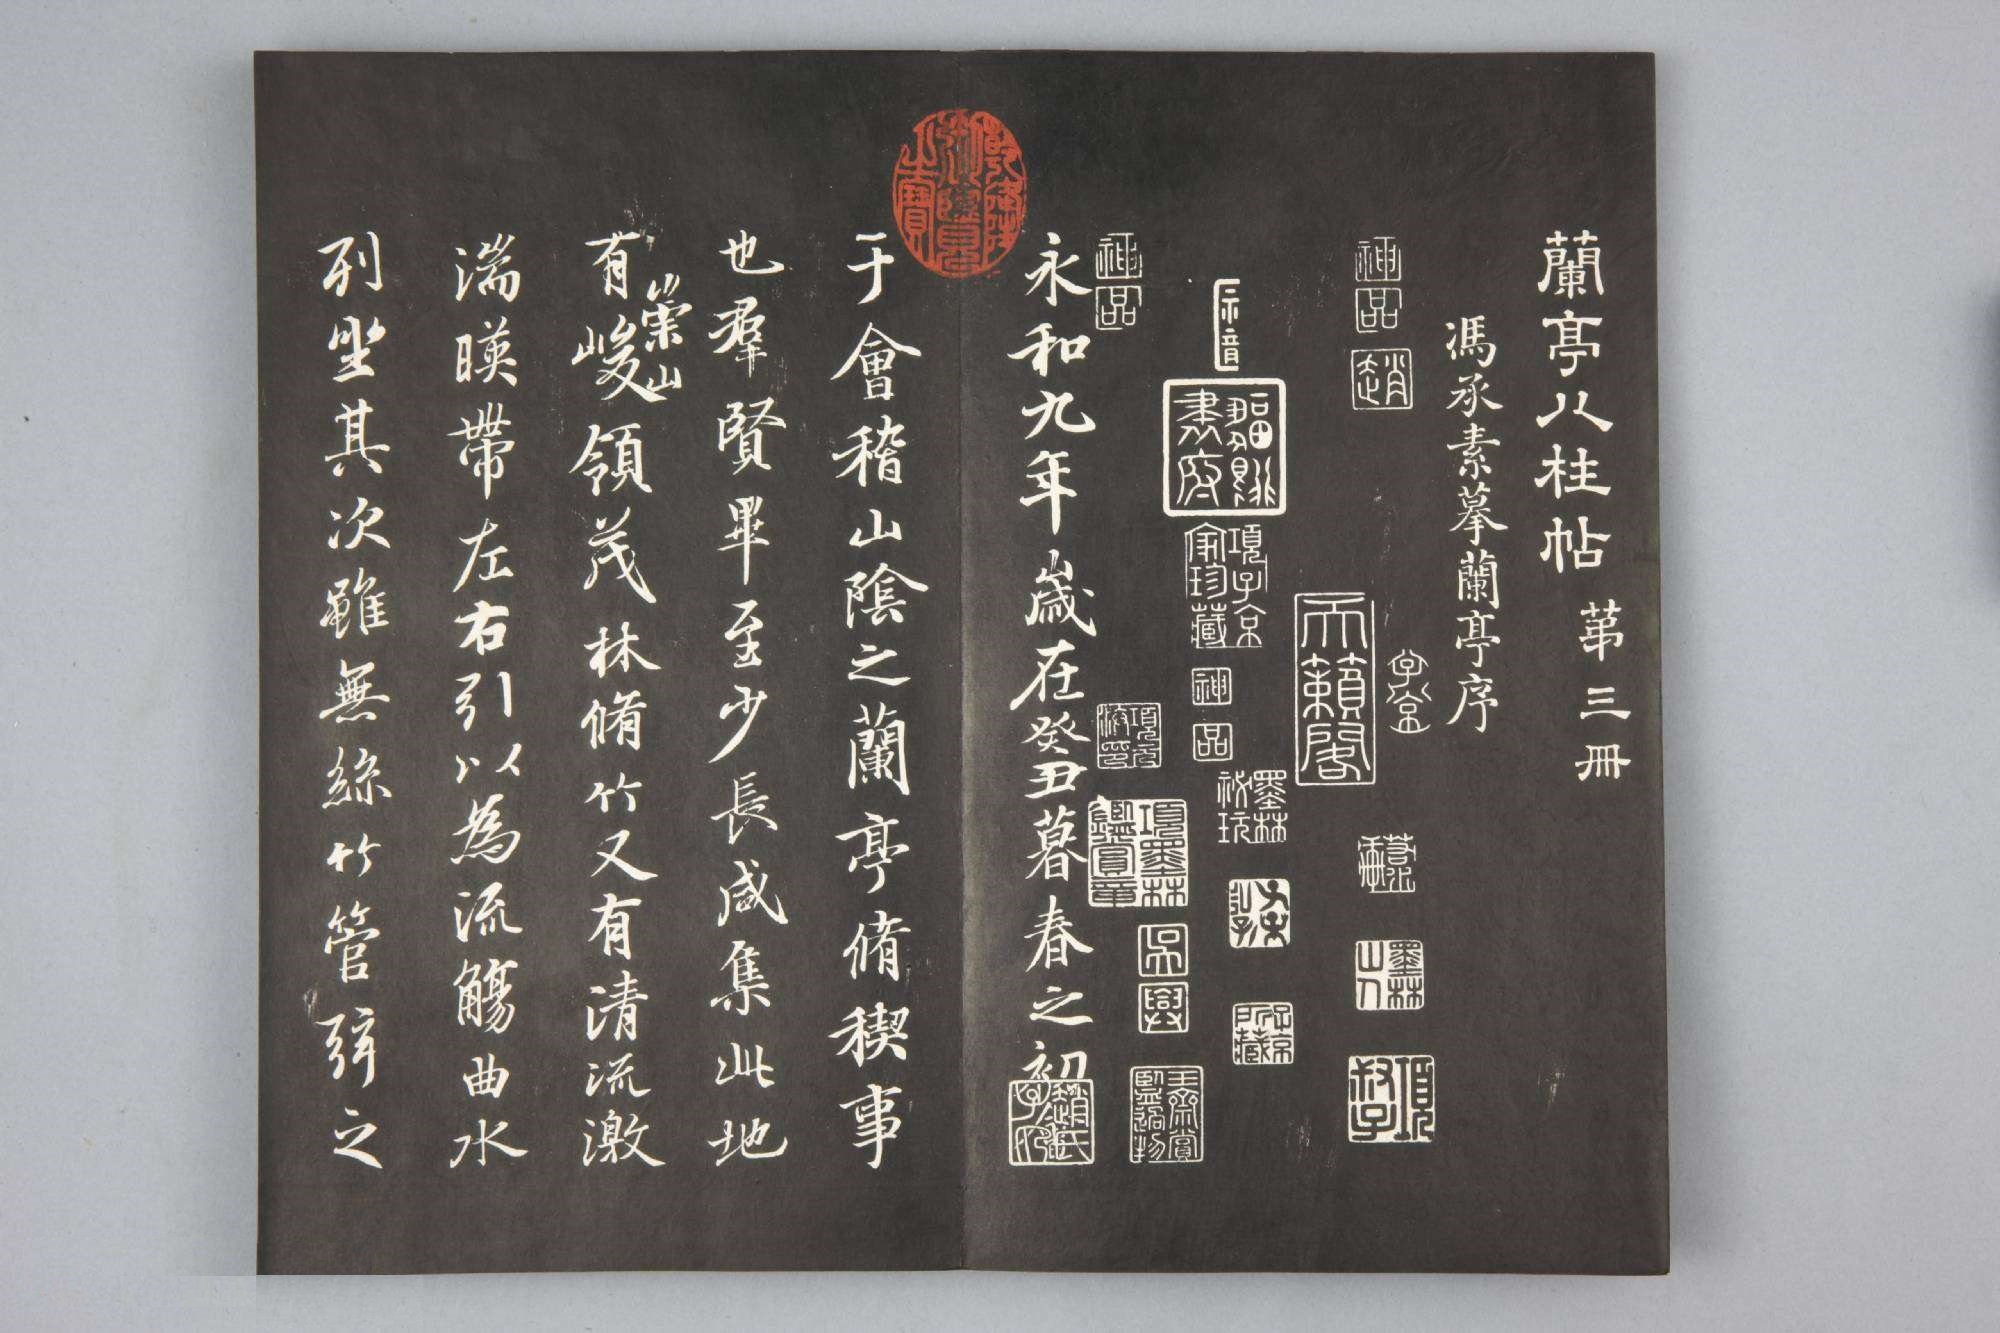 蘭亭八柱帖 第三冊
馮承素摹蘭亭序
神品
趙
子京
墨林山人
項叔子
天籟閣
宗音
項子京家珍藏
神品
墨林祕玩
子京所藏
神品
項元汴印
項墨林鑑賞章
吳興
趙氏子昂
永和九年歲在癸丑暮春之初
乾隆御覽之寶
于會稽山陰之蘭亭脩稧事
也羣賢畢至少長咸集此地
有崇山峻領茂林脩竹又有清流激
湍暎帶左右引以為流觴曲水
列坐其次雖無絲竹管弦之